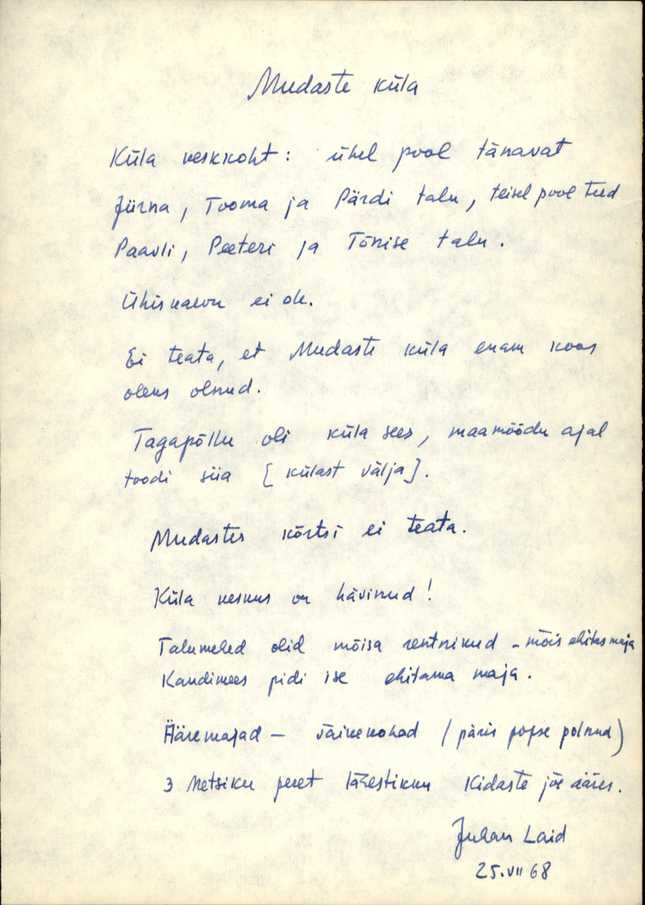 Mudaste küla
Küla keskkoht: ühel pool tänavat
Jürna, Tooma ja Pärdi talu, teisel pool teed
Paavli, Peeteri ja Tõnise talu.
Ühiskaevu ei ole.
Ei teata, et Mudaste küla enam koos
oleks olnud.
Tagapõllu oli küla sees, maamõõdu ajal
toodi siia [külast välja].
Mudastes kõrtsi ei teata.
Küla keskus on hävinud!
Talumehed olid mõisa rentnikud - mõis ehitas maja
Kandimees pidi ise ehitama maja.
Ääremajad - väikekohad (päris popse polnud)
3 Metsiku peret lähestikku Kidaste jõe ääres.
Juhan Laid
25.VII 68